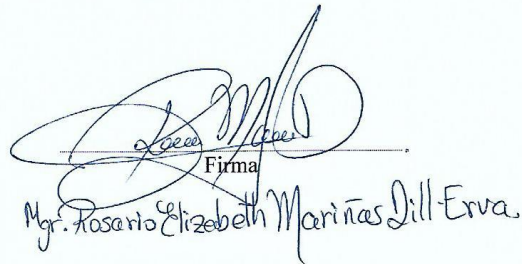 Firma
Mgr. Rosario Elizabeth Mariñas Dill-Erva